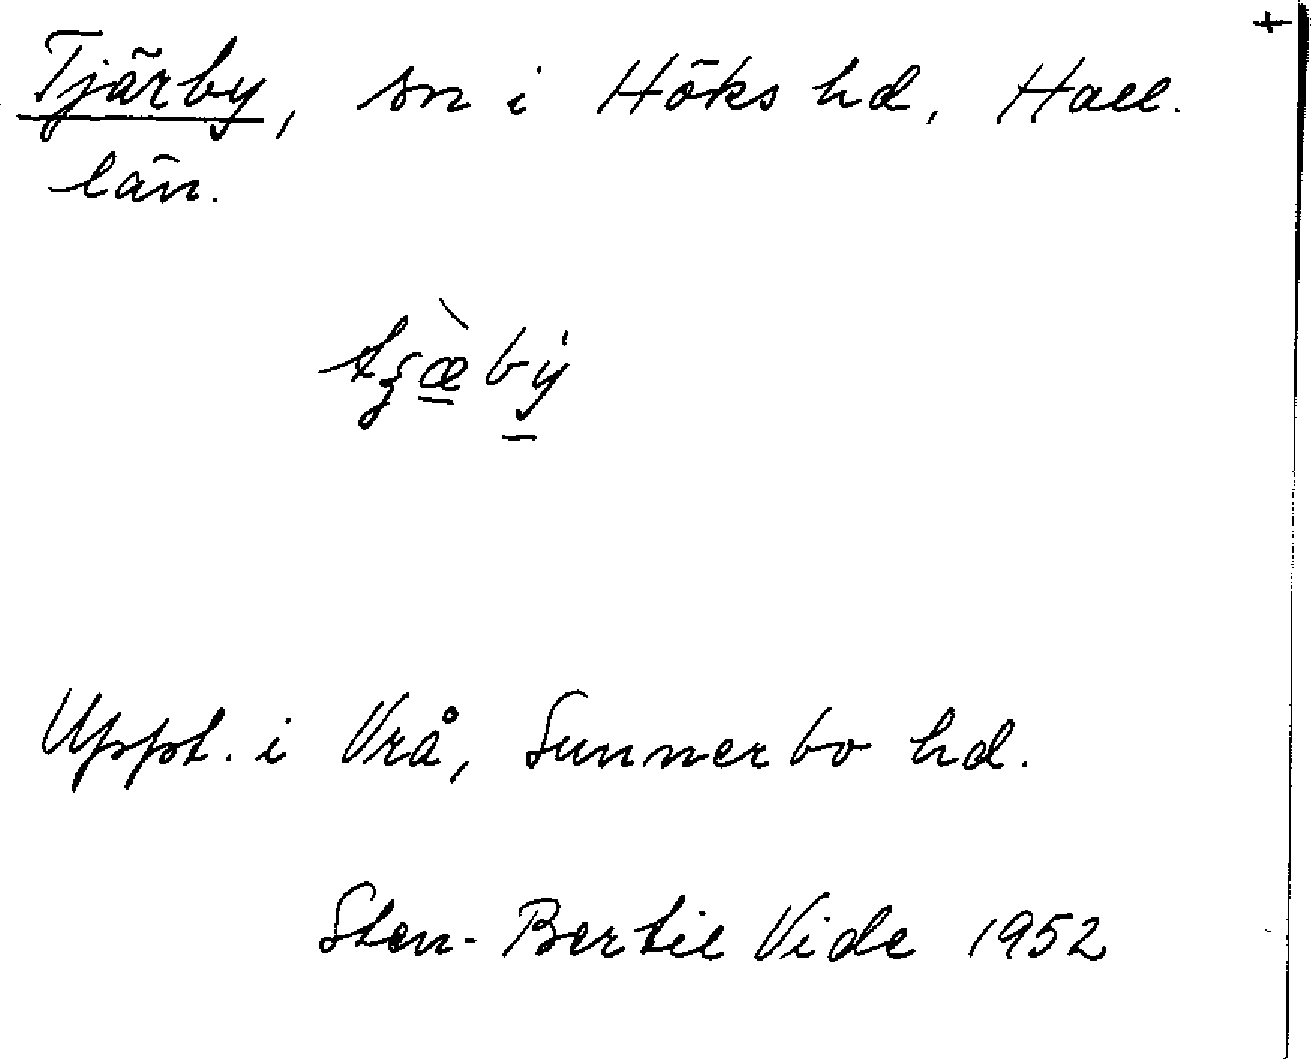 +
Tjärby, sn i Höks hd, Hall.
län.
Uppt. i Vrå, Sunnerbo hd.
Sten-Bertil Vide 1952